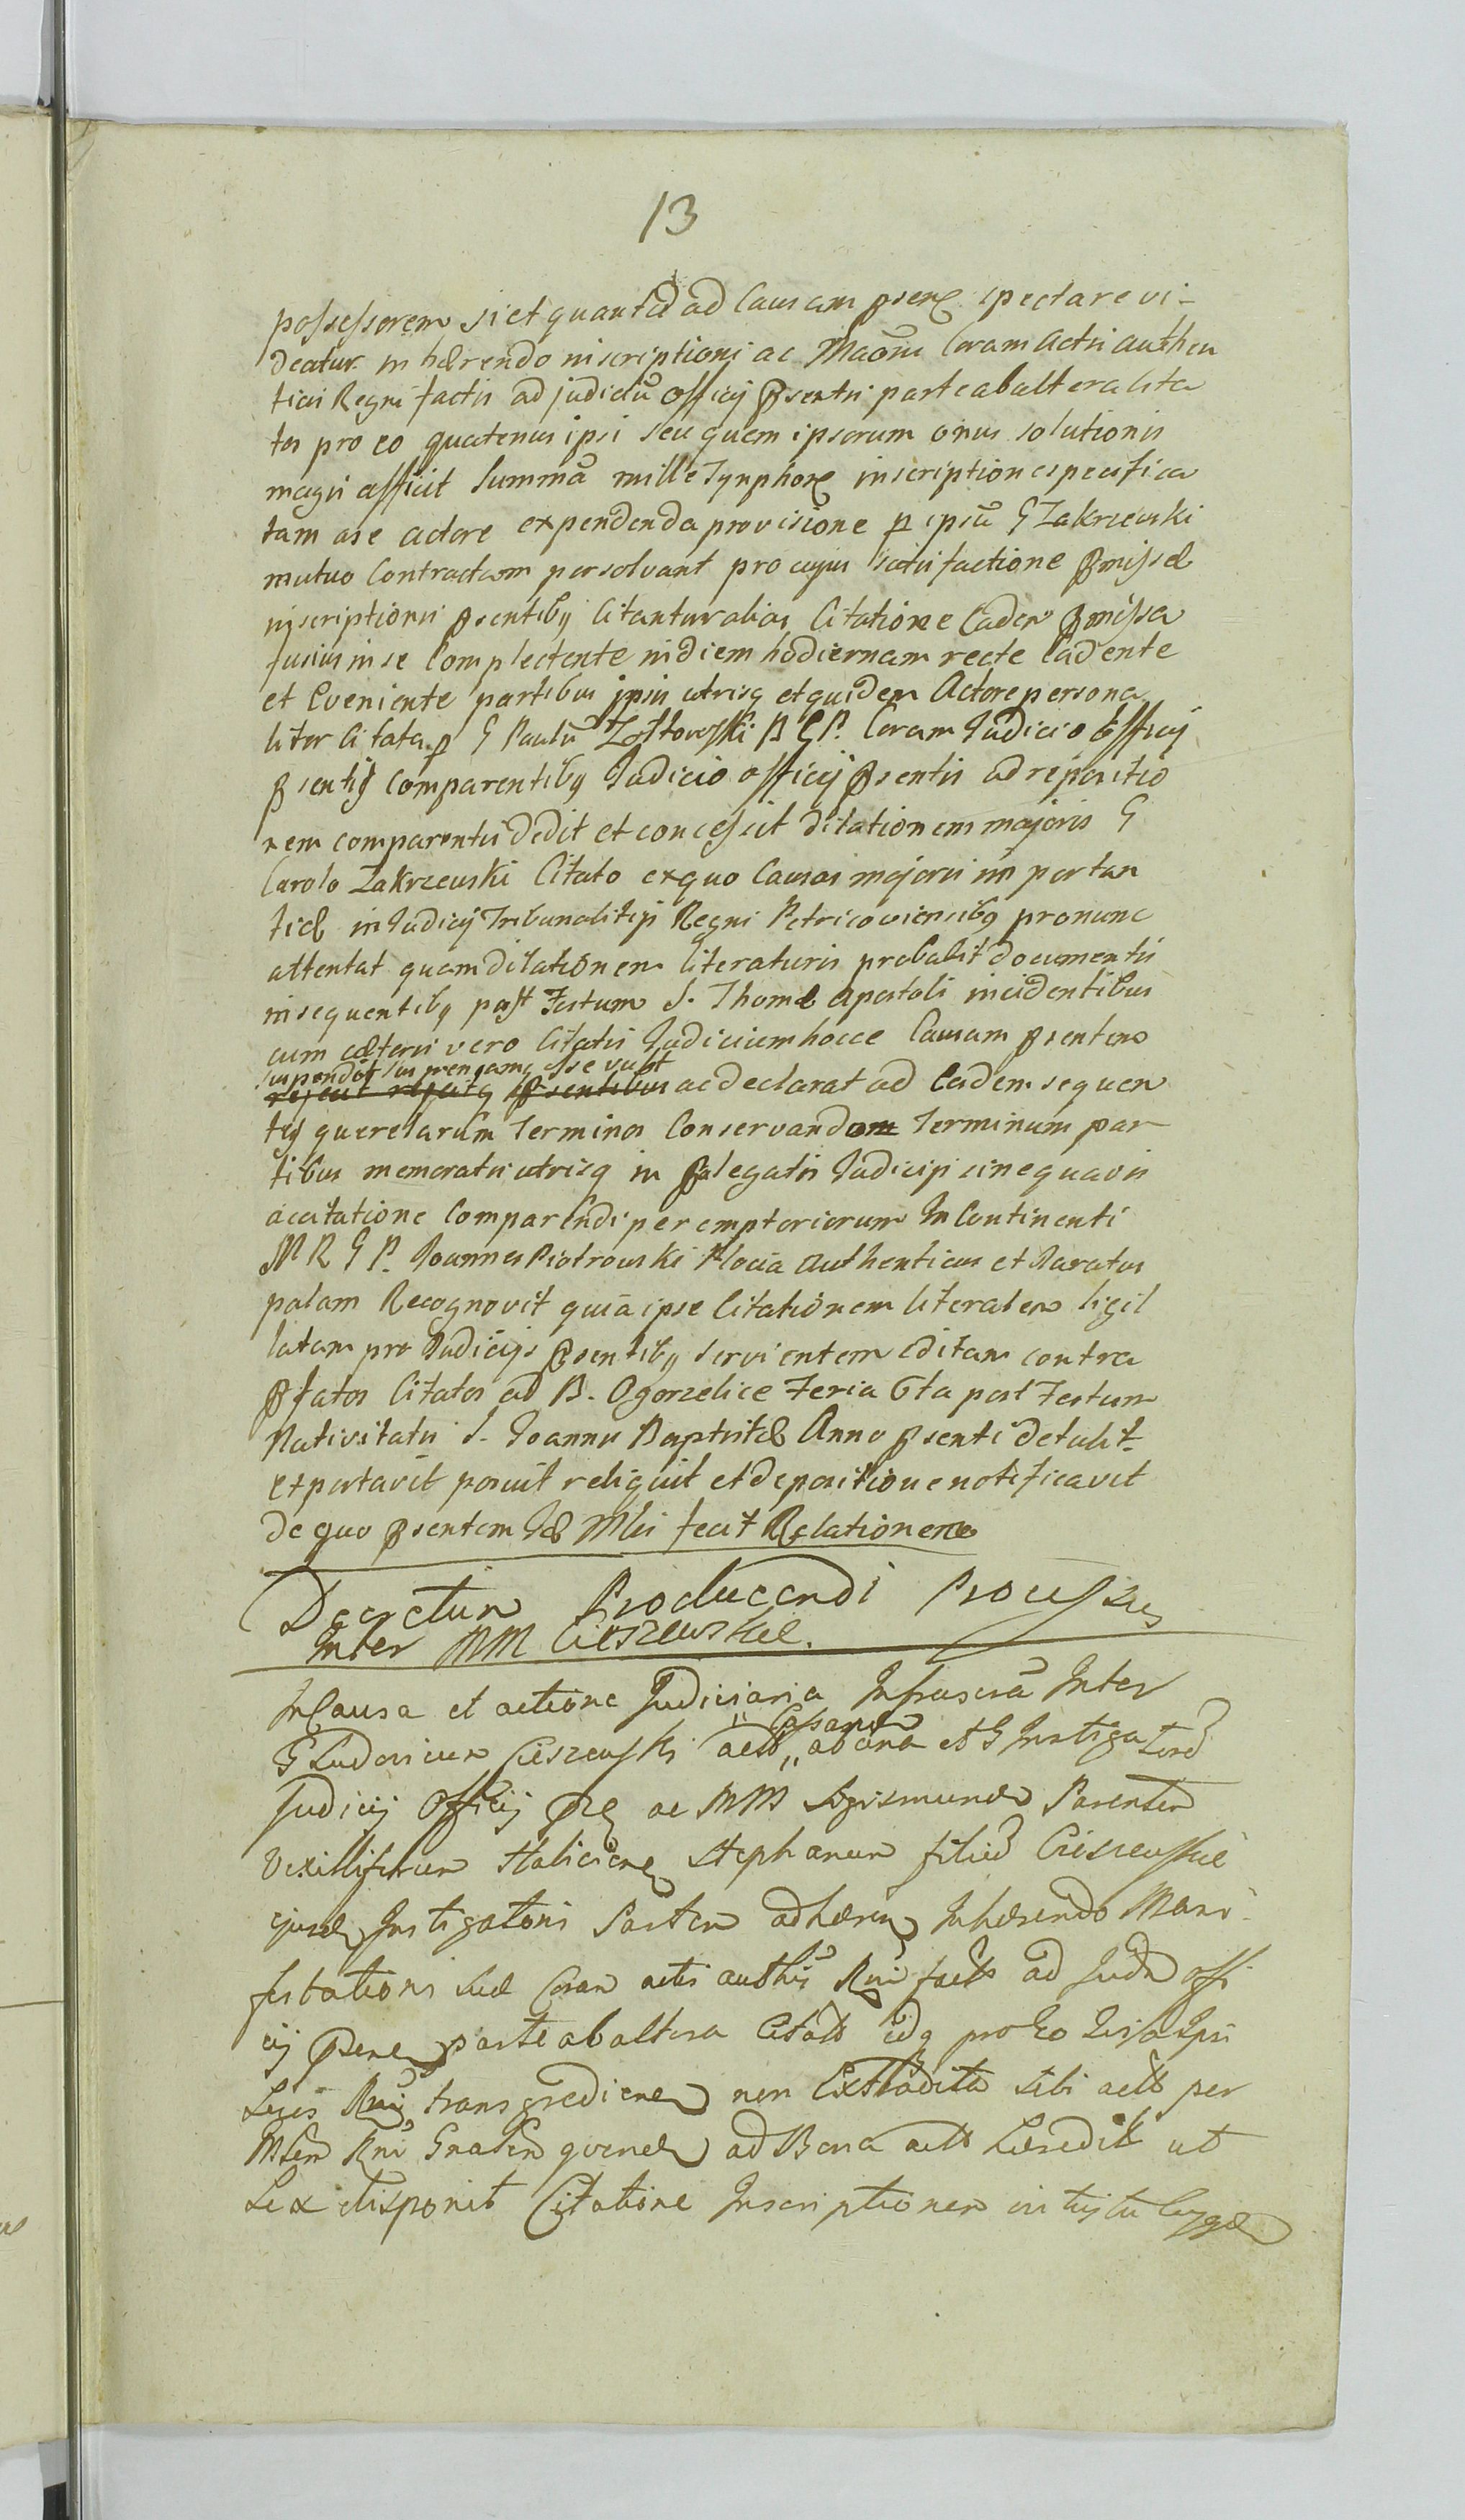 13
possessorem si et quantũ ad Causam pseñ spectare vi-
deatur inhærendo inscriptioni ac Maõni Coram Actis authen
ticis Regni factis ad judiciũ Officij psentis parte ab altera Cita
tos pro eo quatenus ipsi seu quem ipsorum onus solutionis
magis afficit Summã mille Tynphoñ inscriptione specifica
tam a se Actore expendenda provisione p ipsũ G Zakrzewski
mutuo Contractam persolvant pro cujus satisfactione pmissæ
inscriptionis psentibq Citantur alias Citatione Eadem pmissa
fusius in se Complectente in diem hodiernam recte Cadente
et Eveniente partibus ipsis utrisq et quidem Actore persona
liter Citata p G Paulũ Zoltowski B G P. Coram Judicio Officij
psentis comparentibq Judicio officij psentis ad repositio
nem comparentis dedit et concessit dilationem majoris G
Carolo Zakrzewski Citato ex quo Causas majoris impor tan
tiæ in Judicijs Tribunalitijs Regni Petricoviensibq pronunc
attentat quam dilationem literatoris probabit documentis
insequentibq post Festum S. Thomæ Apostoli incidentibus
cum cæteris vero Citatis Judicium hocce Causam psentem
suspendit suspensamq esse vult
psentibus ac declarat ad Eadem sequen
tes querelarum Terminos Conservandam Terminum par
tibus memoratis utrisq in palegatis Judicijs sine quavis
accitatione Comparendi peremptoriorum In Continenti
M R G P. Joannes Piotrowski Kłocia authenticus et Juratus
palam Recognovit quia ipse Citationem literalem sigil
latam pro Judicijs psentibq servientem editam contra
pfatos Citatos ad B. Ogorzelice Feria 6ta post Festum
Nativitatis S. Joannis Baptistæ Anno psenti detulit
et portavit posuit reliquit et de positione notificavit
de quo psentem Jæ Mlis fecit Relationem
Decretum Producendi Processus
Inter MM Cieszewskie.
In Causa et actione Judiciaria Infrascrã Inter
G Ludovicum Cieszewski act ab una et G Instigatorẽ
Judicij Officij pñ ac MM Sigismundum Parentem
Vexilliferum Haliciene Stephanum filiũ Cieszewskie
ejusd Instigatoris Partem adhæren Inhærendo Mani-
festationi suæ Coram actis authis Rni factis ad Judm offi
cij psene parte ab altera Citatt idq pro Eo Quia Ipsi
Leges Rni transgrediene non Extradita sibi actt per
Mlem Rni Gnalem ad Bona actt Hæredit ut
Lex disponit Citatione Inscriptionem